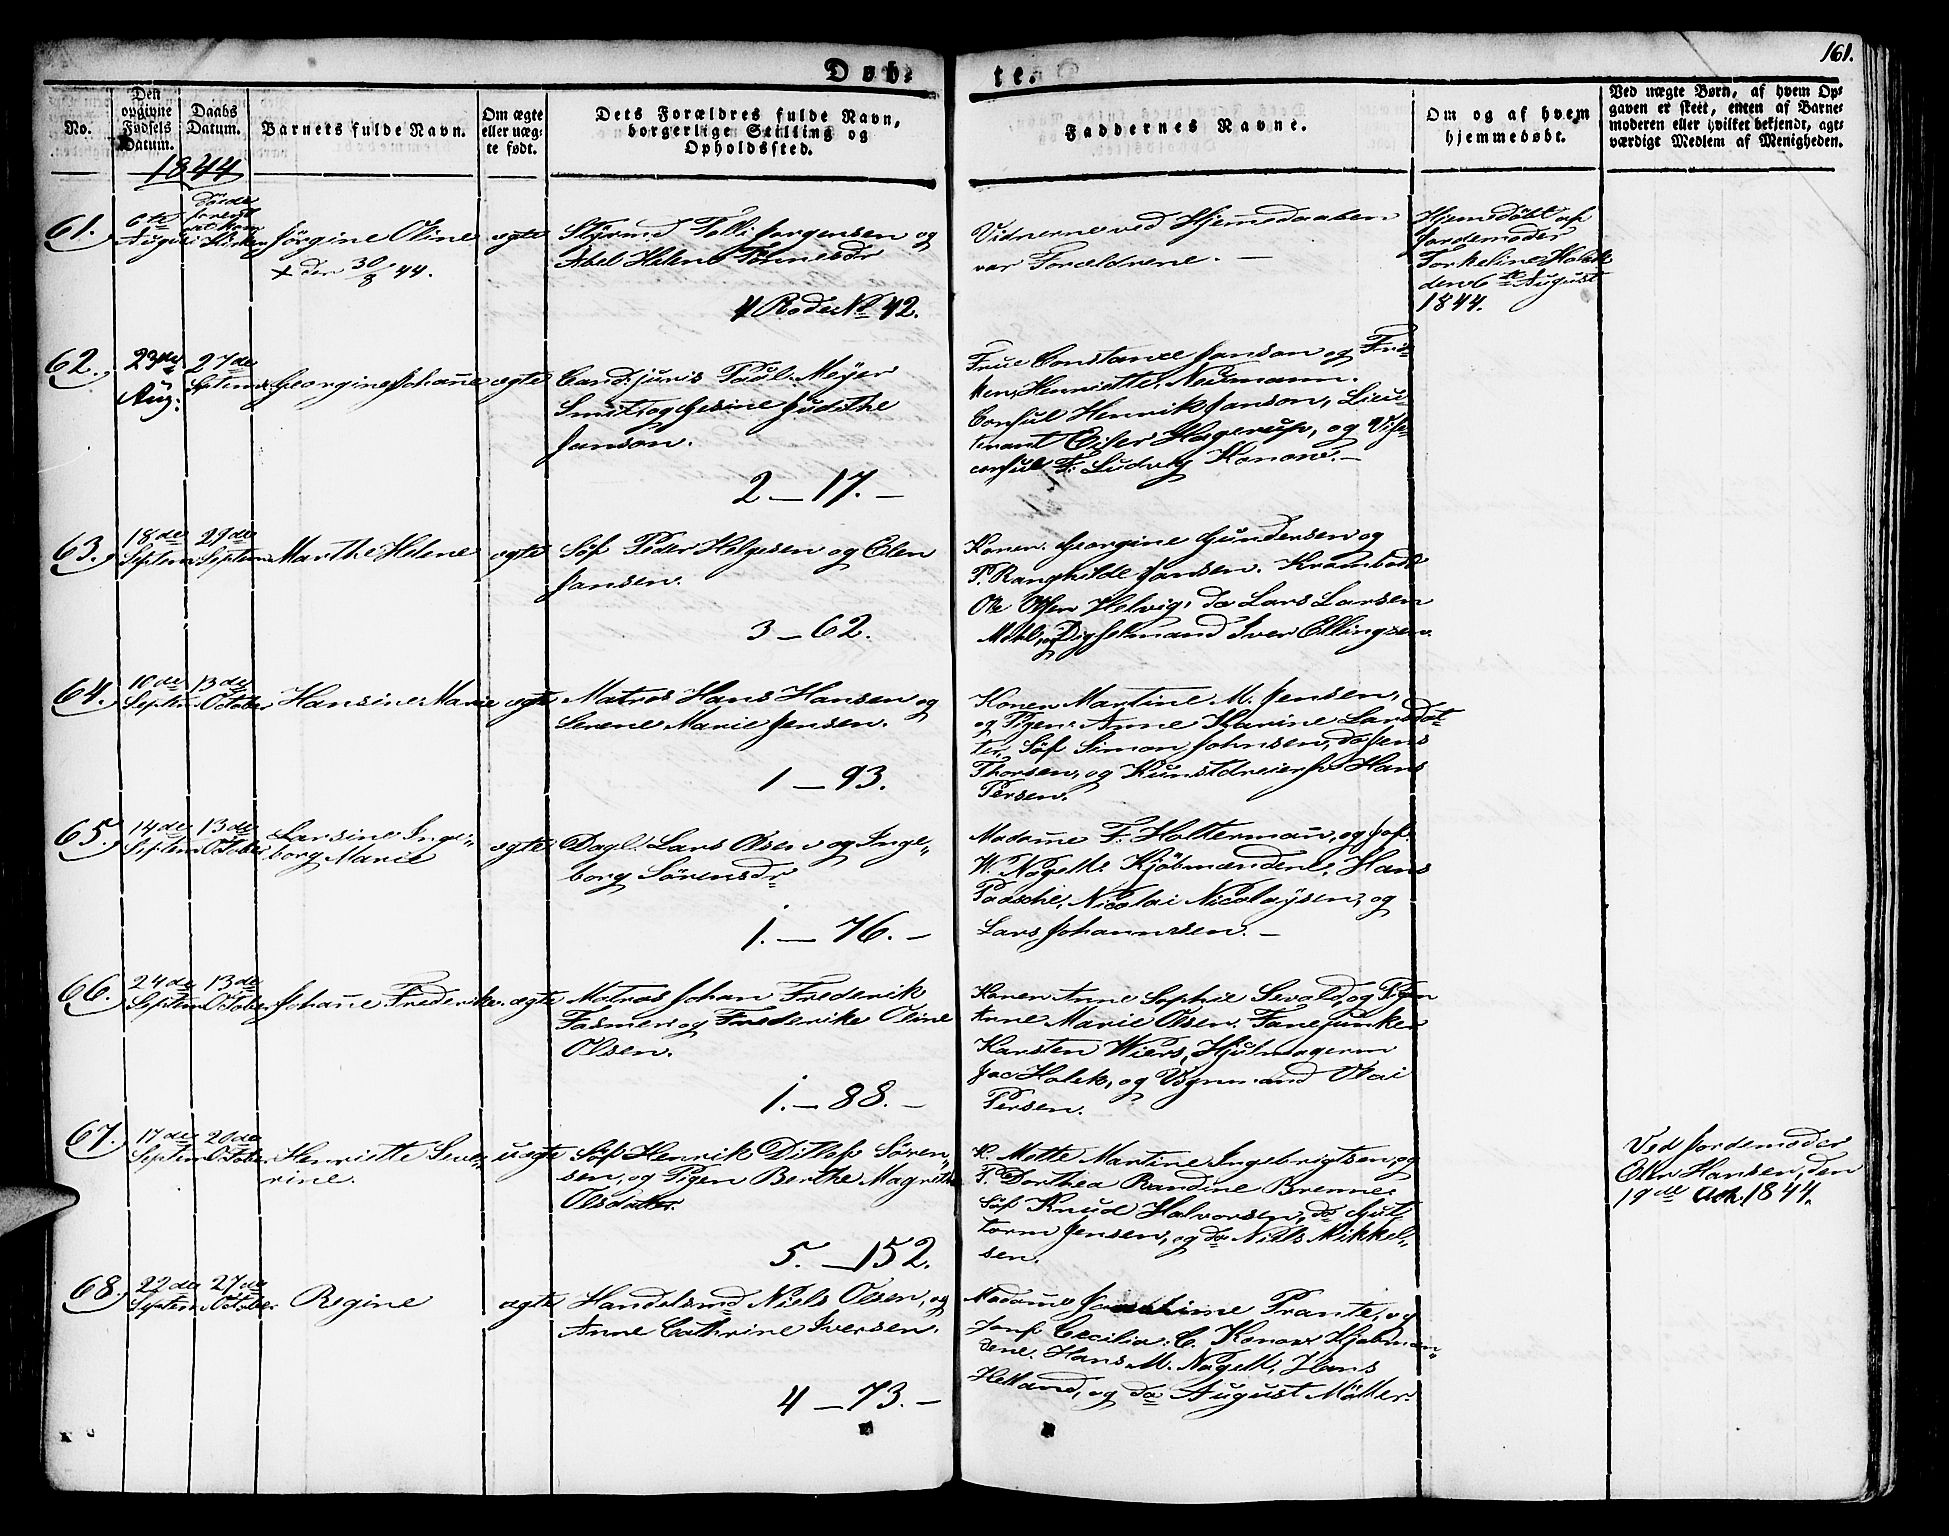 161.
Døb-
te.
No.
Den
opgivne
Fødsels
Datum.
Daabs
Datum.
Barnets fulde Navn.
Om ægte
eller uæg-
te født.
Dets Forældres fulde Navn,
borgerlige Stilling og
Opholdssted.
Faddernes Navne.
Om og af hvem
hjemmedøbt.
Ved uægte Børn, af hvem Op-
gaven er skeet, enten af Barne-
moderen eller hvilket bekjendt, agt-
værdigt Medlem af Menigheden.
1844
61.
6te
August
Døde
forend
Kirken
Jørgine Oline
+ den 30/8 44.
ægte
Styrmd Tolli Jørgensen og
Abel Helene Tønnesdr
4 Rode No 42.
Vidnerne ved Hjemedaaben
var Forældrene. —
Hjemedøbt af
Jordemoder
Torkeline Holck
den 6te August
1844.
62.
23de
Aug:
27de
Septemb.
Georgine Johanne
ægte
Cand: juris Paul Meyer
Smit, og Gesine Judithe
Janson.
2 — 17. —
Frue Constance Janson og Frø-
ken Henriette Neumann.
Consul Henrik Janson, Lieu-
tenant Eiler Hagerup, og Vise-
consul F. Ludvig Konow. —
63.
18de
Septem
29de
Septem
Marthe Helene
ægte
Söf Peder Helgesen og Elen
Jansen.
3 — 62.
Konen Georgine Gundersen og
P. Ranghilde Jansen. Krambodk
Ole Olsen Helvig, do Lars Larsen
Mehl, og Digselmand Iver Ellingsen.
64.
10de
Septem
13de
October
Hansine Marie
ægte
Matros Hans Hansen og
Serene Marie Jensen.
1 — 93.
Konen Martine M. Jensen,
og Pigen Anne Karine Larsdot-
ter, Söf Simon Johnsen, do Jens
Thorsen, og Kunstdreier Hans
Persen.
65.
14de
Septem
13de
October
Larsine Inge-
borg Marie
ægte
Dagl. Lars Olsen og Inge-
borg Sørensdr
1. — 76. —
Madame F. Holterman, og Jof.
W. Nagell. Kjöbmændene, Hans
Paasche, Nicolai Nicolaysen, og
Lars Johannesen. —
66.
24de
Septem
13de
October
Johane Frederike
ægte
Matros Johan Frederik
Fasmer og Frederike Oline
Olsen.
1. — 88. —
Konen Anne Sophie Sevald, og Pigen
Anne Marie Olsen. Fanejunker
Karsten Wiers, Hjulmagerm
Jac Holck, og Vognmand Olai
Persen.
67.
17de
Septem
20de
October
Henriette Seve-
rine.
uægte
Söf Henrik Ditlef Sören-
sen, og Pigen Berthe Magrethe
Olsdatter.
5. — 152.
K. Mette Martine Ingebrigtsen, og
P. Dorthea Randine Brenne.
Söf Knud Halvorsen, do Gut-
torm Jensen, og do Niels Mikkel-
sen.
Ved Jordemoder
Olen Hansen, den
19de Oct. 1844.
68.
22de
Septem
27de
October
Regine
ægte
Handelsmd Niels Olsen, og
Anne Cathrine Iversen.
4 — 73. —
Madame Joachime Prante, og
Jomf Cecilia C. Konow Kjøbmæn-
dene. Hans M. Nagell, Hans
Helland, og do August Möller.